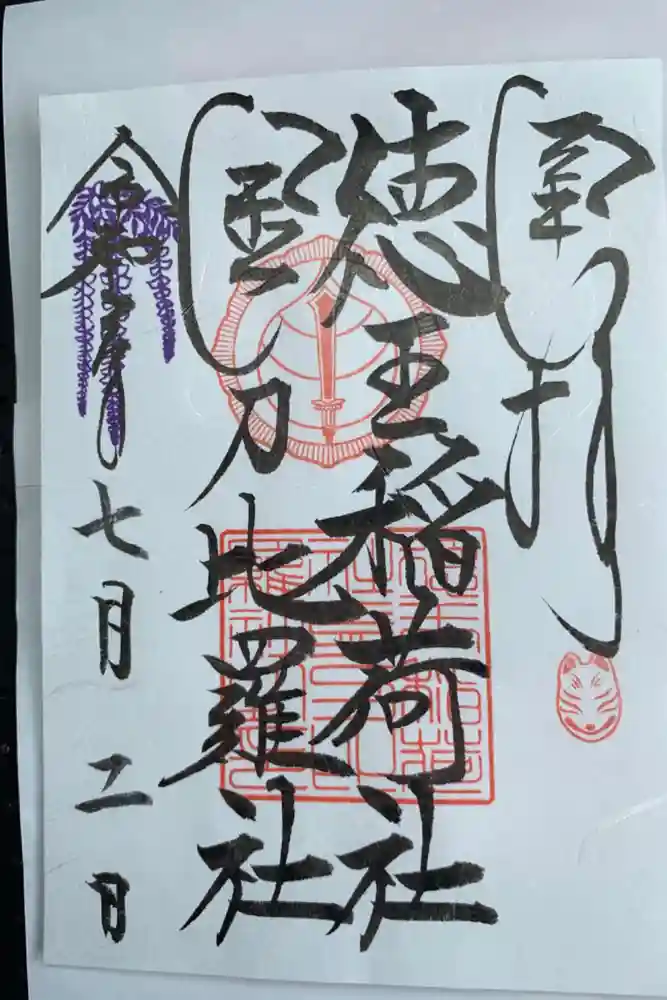 奉拝
徳王稲荷社
金刀比羅社
令和 年七月二日